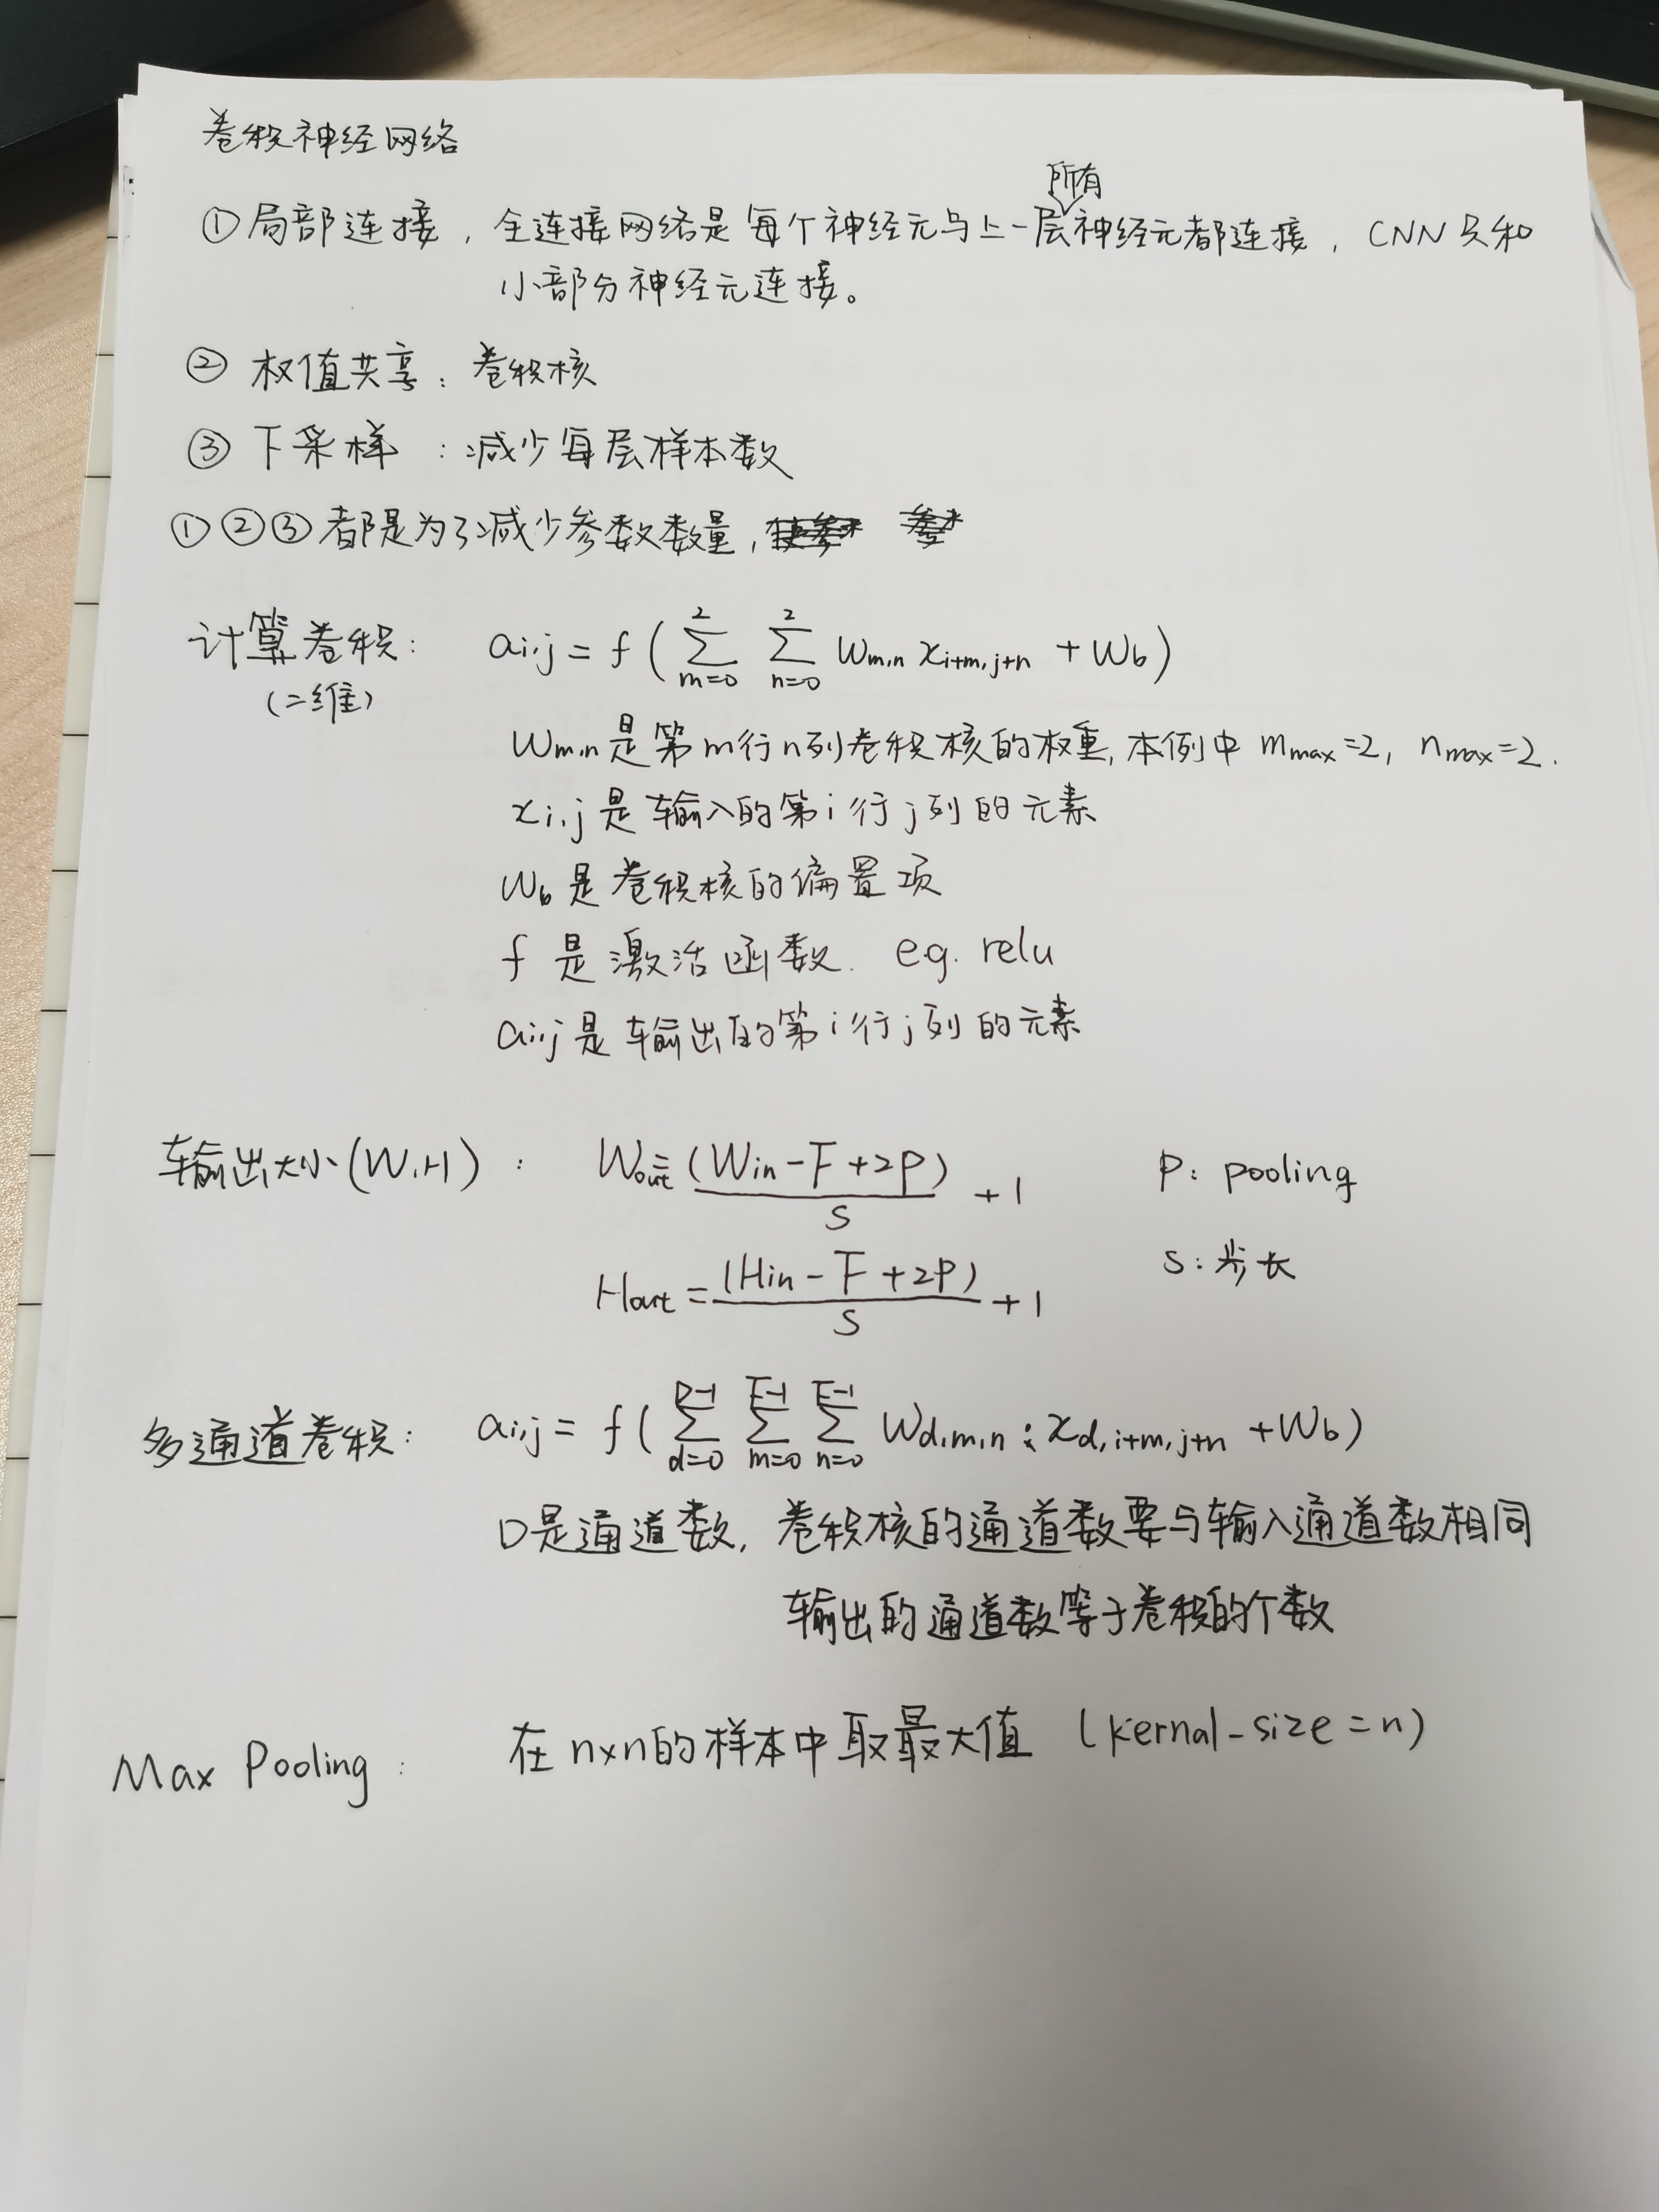 卷积神经网络
①局部连接，全连接网络是每个神经元与上一层所有神经元都连接，CNN只和
小部分神经元连接。
② 权值共享：卷积核
③ 下采样：减少每层样本数
①②③都是为了减少参数数量，
计算卷积： a_{i,j} = f ( \sum_{m=0}^{2} \sum_{n=0}^{2} w_{m,n} x_{i+m,j+n} + w_b )
(二维)
w_{m,n}是第m行n列卷积核的权重,本例中 m_{max}=2, n_{max}=2.
x_{i,j}是输入的第i行j列的元素
w_b是卷积核的偏置项
f 是激活函数. e.g. relu
a_{i,j}是输出的第i行j列的元素
输出大小(W,H)： W_{out} = \frac{(W_{in}-F+2P)}{S} + 1 P: pooling
H_{out} = \frac{(H_{in}-F+2P)}{S} + 1 S:步长
多通道卷积： a_{i,j} = f ( \sum_{d=0}^{D-1} \sum_{m=0}^{F-1} \sum_{n=0}^{F-1} w_{d,m,n} x_{d,i+m,j+n} + w_b )
D是通道数, 卷积核的通道数要与输入通道数相同
输出的通道数等于卷积的个数
Max Pooling： 在n×n的样本中取最大值 (kernal-size=n)